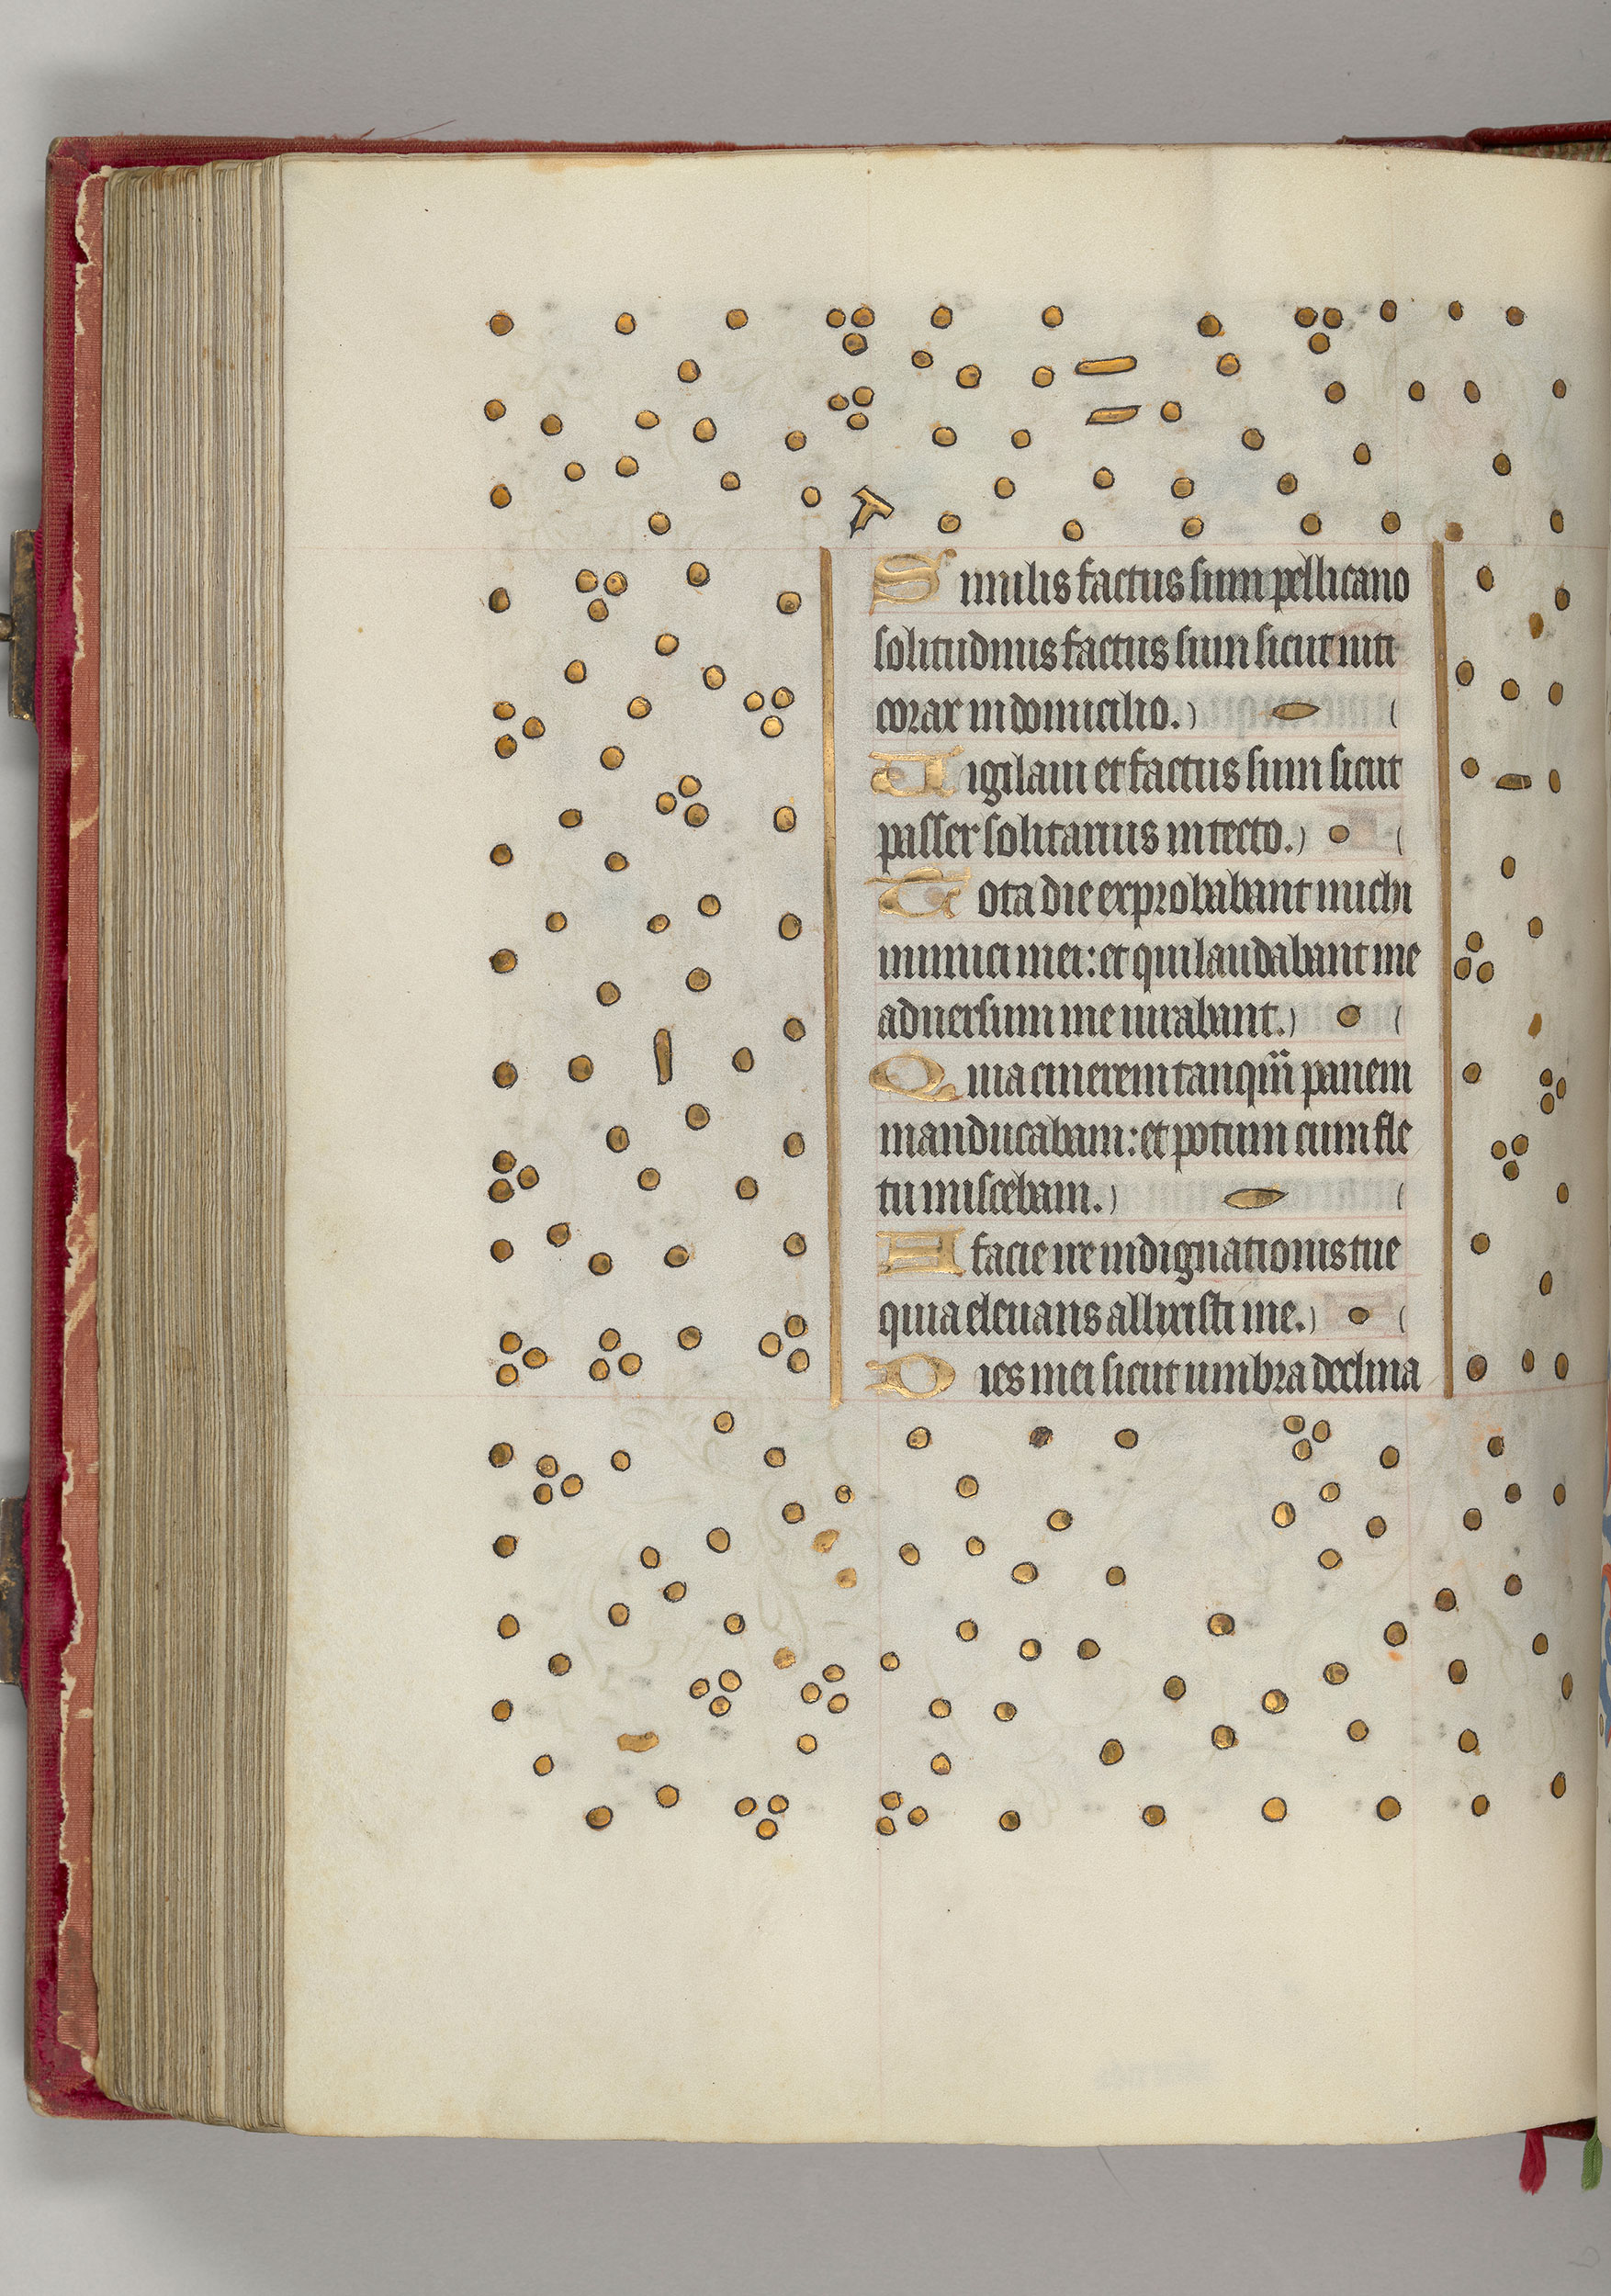 Similis factus sum pellicano
solitudinis factus sum sicut niti
corax in domicilio.
Vigilaui et factus sum sicut
passer solitarius in tecto.
Tota die exprobabant michi
inimici mei: et qui laudabant me
aduersum me iurabant.
Quia cinerem tanqm̄ panem
manducabam: et potum cum fle
tu miscebam.
A facie ire indignationis tue
quia eleuans allixisti me.
Dies mei sicut umbra declina